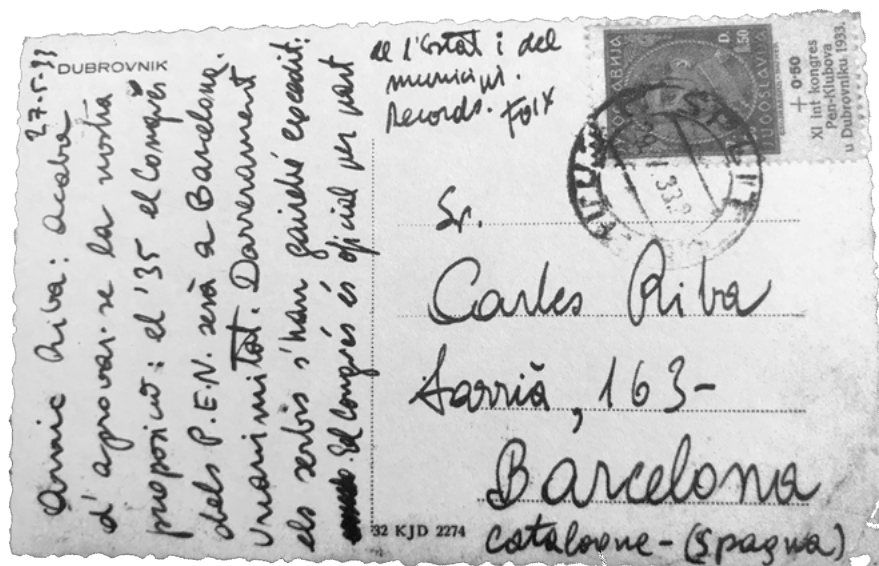 27-5-33
DUBROVNIK
Amic Riba: acaba
d'aprovar-se la nostra
proposició: el '35 el Congrés
dels P.E.N. serà a Barcelona.
Unanimitat. Darrerament
els serbis s'han gairebé excedit:
El Congrés és oficial per part
de l'Estat i del
municipi.
Records. Foix
D.
1.50
JUGOSLAVIJA
+ 0·50
XI Int kongres
Pen-Klubova
u Dubrovniku 1933.
SPLIT
Sr.
Carles Riba
Sarrià, 163-
Barcelona
Catalogne - (Spagna)
32 KJD 2274